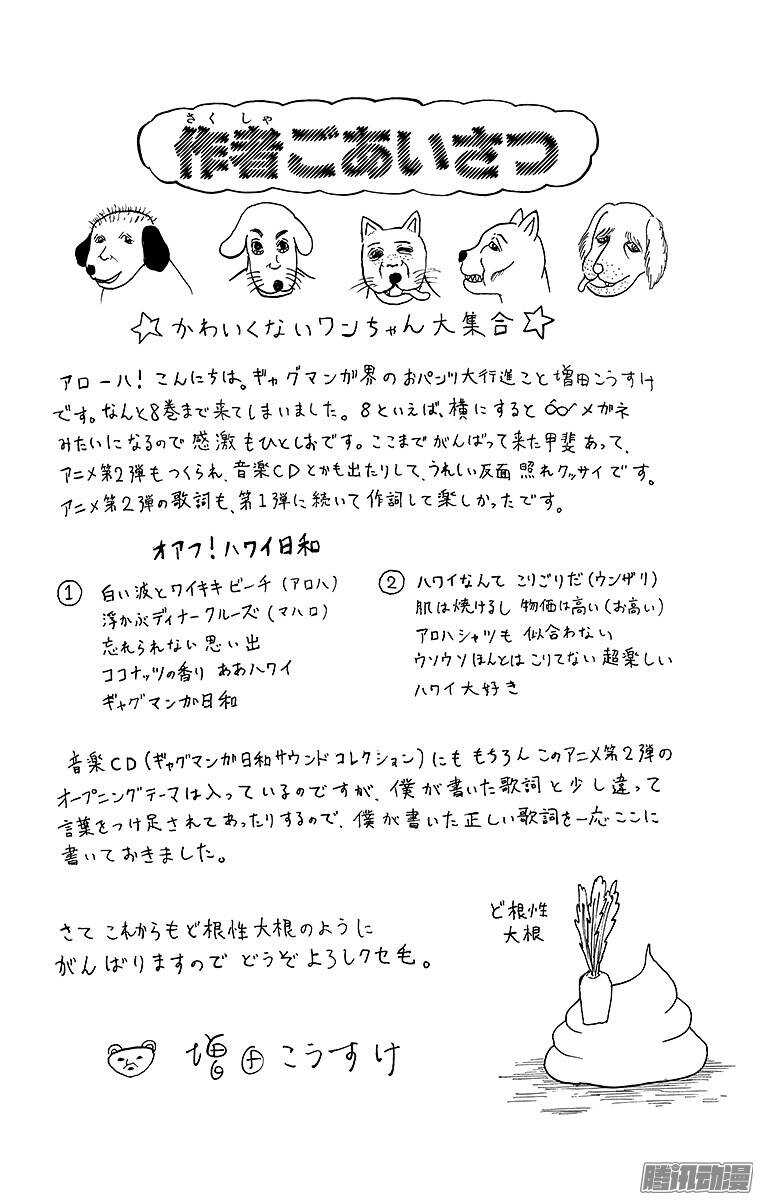 さくしゃ
作者ごあいさつ
☆かわいくないワンちゃん大集合☆
アローハ！こんにちは。ギャグマンガ界のおパンツ大行進こと増田こうすけ
です。なんと8巻まで来てしまいました。8といえば、横にするとメガネ
みたいになるので感激もひとしおです。ここまでがんばって来た甲斐あって、
アニメ第2弾もつくられ、音楽CDとかも出たりして、うれしい反面照れクッサイです。
アニメ第2弾の歌詞も、第1弾に続いて作詞して楽しかったです。
オアフ！ハワイ日和
① 白い波とワイキキビーチ(アロハ)
浮かぶディナークルーズ(マハロ)
忘れられない思い出
ココナッツの香り ああハワイ
ギャグマンガ日和
② ハワイなんて こりごりだ(ウンザリ)
肌は焼けるし 物価は高い(お高い)
アロハシャツも 似合わない
ウソウソほんとは こりてない 超楽しい
ハワイ大好き
音楽CD(ギャグマンガ日和サウンドコレクション)にももちろんこのアニメ第2弾の
オープニングテーマは入っているのですが、僕が書いた歌詞と少し違って
言葉をつけ足されてあったりするので、僕が書いた正しい歌詞を一応ここに
書いておきました。
ど根性
大根
さてこれからもど根性大根のように
がんばりますのでどうぞよろしクセ毛。
増田こうすけ
腾讯动漫